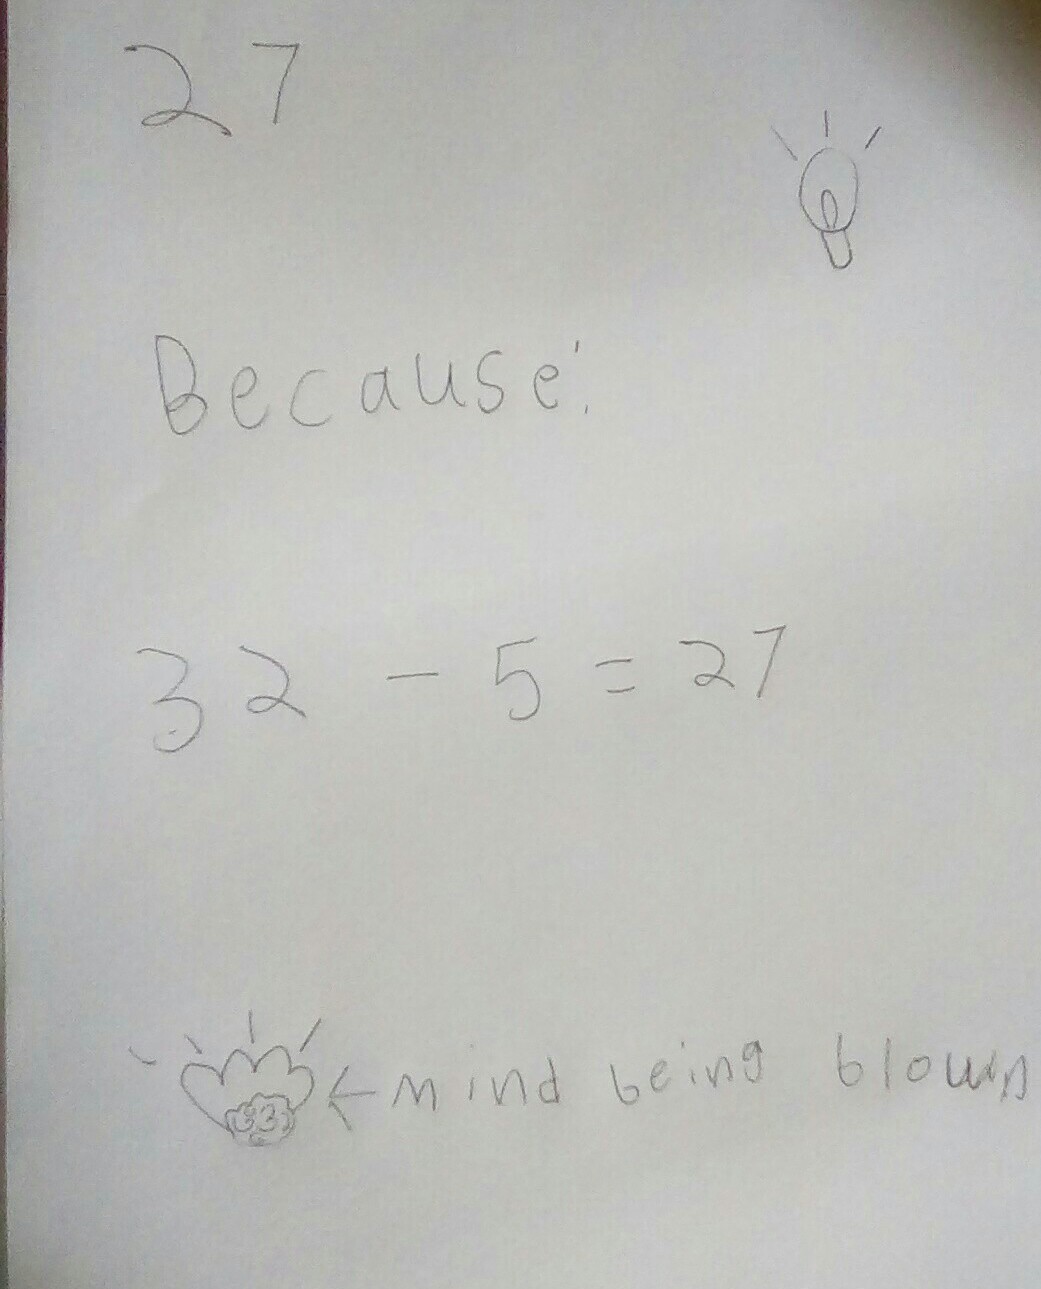 27
Because:
32 - 5 = 27
← mind being blown